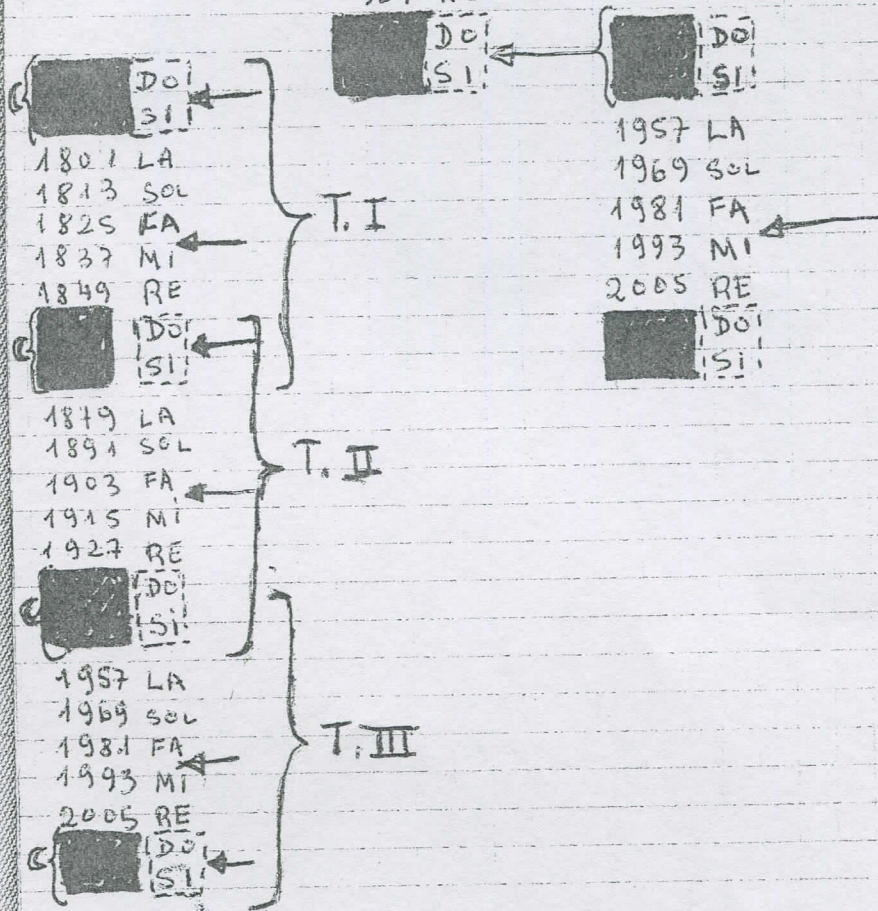 DO
SI
1801 LA
1813 SOL
1825 FA
1837 MI
1849 RE
DO
SI
1879 LA
1891 SOL
1903 FA
1915 MI
1927 RE
DO
SI
1957 LA
1969 SOL
1981 FA
1993 MI
2005 RE
DO
SI
T. I
T. II
T. III
DO
SI
DO
SI
1957 LA
1969 SOL
1981 FA
1993 MI
2005 RE
DO
SI